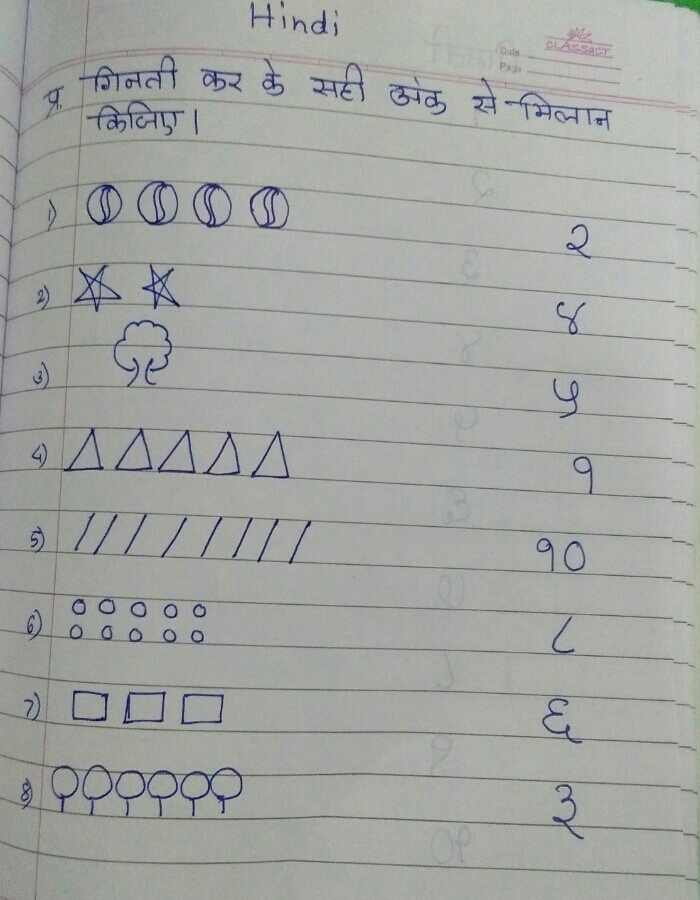 Hindi
CLASSECT
Date
Page
प्र. गिनती कर के सही अंक से मिलान
किजिए।
1) २
2) ४
3) ५
4) १
5) १०
6) ८
7) ६
8) ३